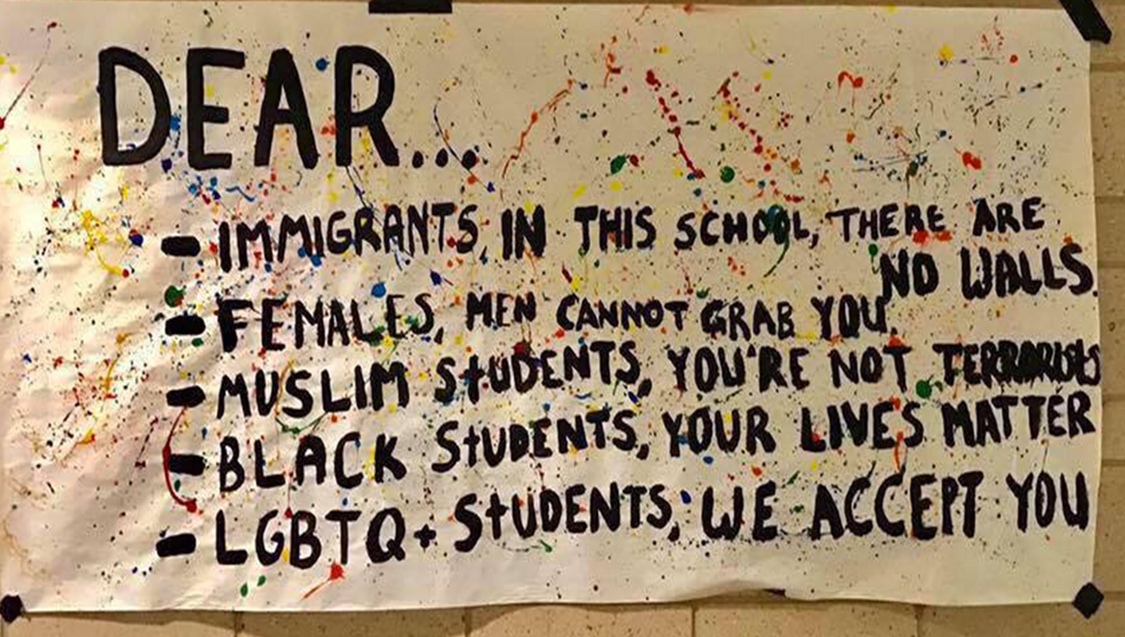 DEAR...
- IMMIGRANTS, IN THIS SCHOOL, THERE ARE
NO WALLS.
- FEMALES, MEN CANNOT GRAB YOU.
- MUSLIM STUDENTS, YOU'RE NOT TERRORISTS
- BLACK STUDENTS, YOUR LIVES MATTER
- LGBTQ+ STUDENTS, WE ACCEPT YOU